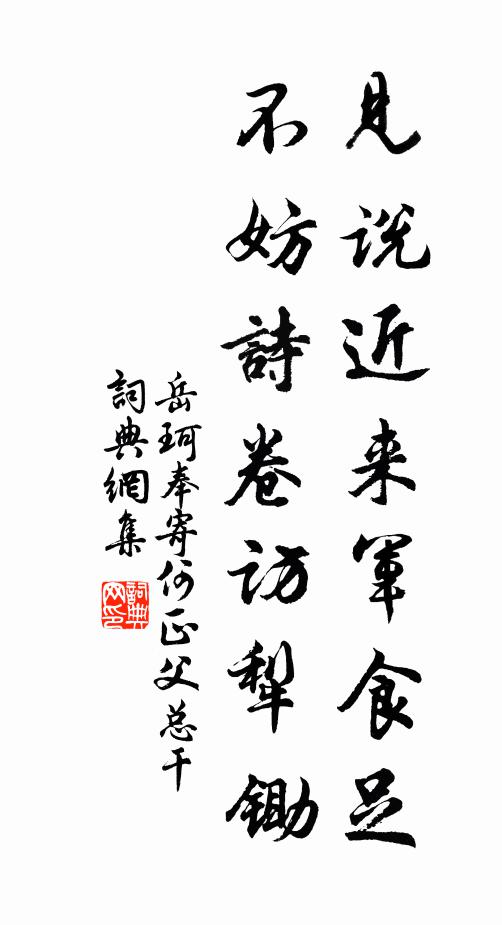 見说近来軍食足
不妨詩卷访犁鋤
岳珂奉寄何正父总干
詞典網集
詞典网印